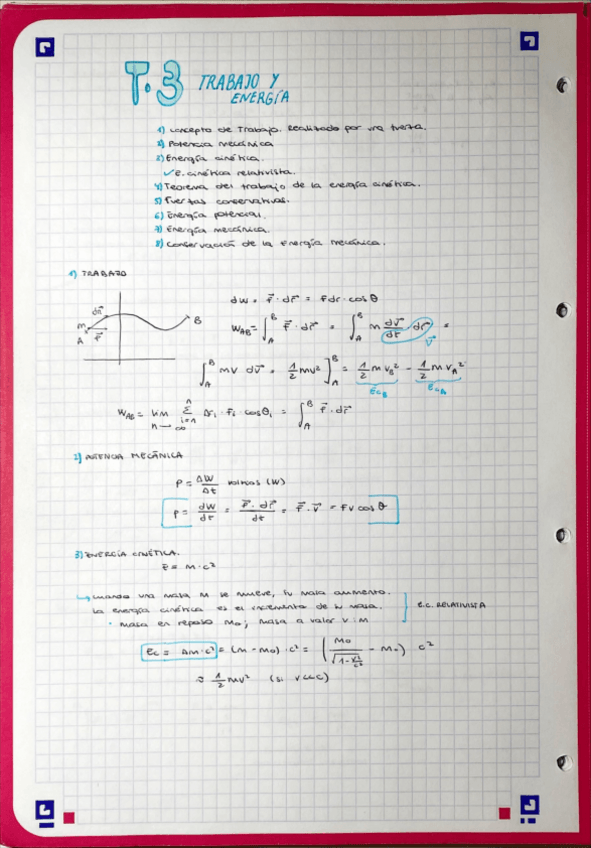 T.3 TRABAJO Y
ENERGÍA
1) Concepto de Trabajo. Realizado por una fuerza.
2) Potencia mecánica
3) Energía cinética.
✓ E. cinética relativista.
4) Teorema del trabajo de la energía cinética.
5) Fuerzas conservativas.
6) Energía potencial.
7) Energía mecánica.
8) Conservación de la Energía mecánica.
1) TRABAJO
dW = F⃗ · dr⃗ = F dr · cos θ
m dr⃗ A F⃗ B
W_AB = ∫_A^B F⃗ · dr⃗ = ∫_A^B m dv⃗/dt · dr⃗ =
v⃗
∫_A^B mv dv⃗ = 1/2 mv² ]_A^B = 1/2 m v_B² - 1/2 m v_A²
Ec_B Ec_A
W_AB = lim n→∞ Σ_{i=1}^n Δr_i · F_i · cos θ_i = ∫_A^B F⃗ · dr⃗
2) POTENCIA MECÁNICA
P = ΔW/Δt (W)
P = dW/dt = F⃗ · dr⃗/dt = F⃗ · v⃗ = F v cos θ
3) ENERGÍA CINÉTICA.
E = m · c²
↳ Cuando una masa M se mueve, su masa aumenta.
La energía cinética es el incremento de su masa.
E.C. RELATIVISTA
· Masa en reposo M₀; masa a valor v : M
Ec = Δm · c² = (m - m₀) · c² = ( M₀/√(1-v²/c²) - M₀ ) c²
≈ 1/2 mv² (si v<<c)